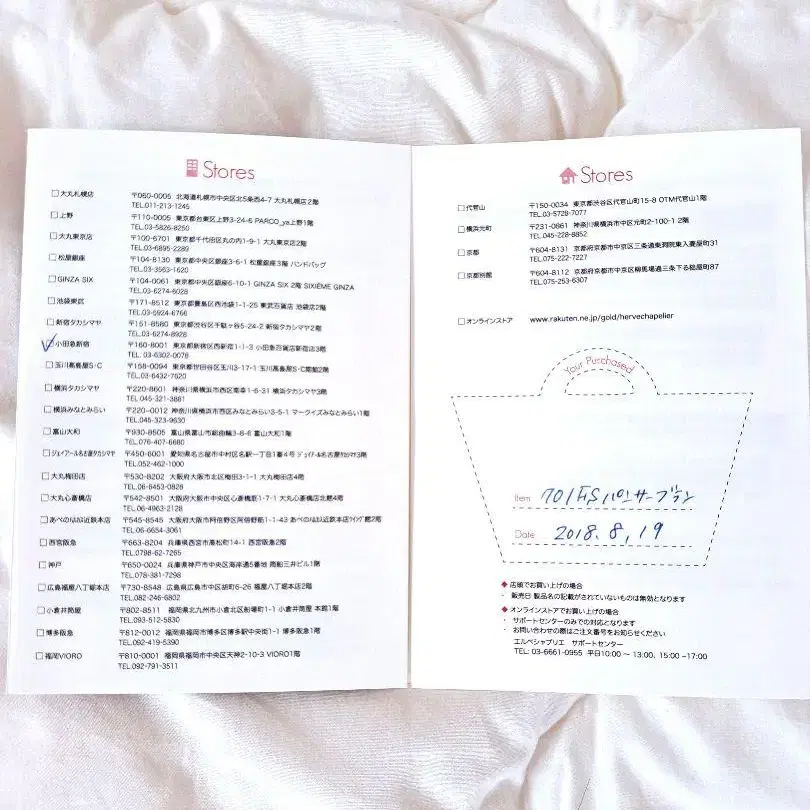 Stores
□大丸札幌店 〒060-0005 北海道札幌市中央区北5条西4-7 大丸札幌店2階
TEL.011-213-1245
□上野 〒110-0005 東京都台東区上野3-24-6 PARCO_ya上野1階
TEL.03-5826-8250
□大丸東京店 〒100-6701 東京都千代田区丸の内1-9-1 大丸東京店2階
TEL.03-6895-2289
□松屋銀座 〒104-8130 東京都中央区銀座3-6-1 松屋銀座3階 ハンドバッグ
TEL.03-3563-1620
□GINZA SIX 〒104-0061 東京都中央区銀座6-10-1 GINZA SIX 2階 SIXIÈME GINZA
TEL.03-6274-6028
□池袋東武 〒171-8512 東京都豊島区西池袋1-1-25 東武百貨店 池袋店2階
TEL.03-5924-6766
□新宿タカシマヤ 〒151-8580 東京都渋谷区千駄ヶ谷5-24-2 新宿タカシマヤ2階
TEL.03-6274-8928
□小田急新宿 〒160-8001 東京都新宿区西新宿1-1-3 小田急百貨店新宿店3階
TEL. 03-6302-0078
□玉川髙島屋S・C 〒158-0094 東京都世田谷区玉川3-17-1 玉川髙島屋S・C南館2階
TEL.03-6432-7620
□横浜タカシマヤ 〒220-8601 神奈川県横浜市西区南幸1-6-31 横浜タカシマヤ3階
TEL.045-321-3881
□横浜みなとみらい 〒220-0012 神奈川県横浜市西区みなとみらい3-5-1 マークイズみなとみらい1階
TEL.045-323-9630
□富山大和 〒930-8505 富山県富山市総曲輪3-8-6 富山大和1階
TEL.076-407-6680
□ジェイアール名古屋タカシマヤ 〒450-6001 愛知県名古屋市中村区名駅一丁目1番4号 ジェイアール名古屋タカシマヤ3階
TEL.052-462-1000
□大丸梅田店 〒530-8202 大阪府大阪市北区梅田3-1-1 大丸梅田店4階
TEL.06-6453-0828
□大丸心斎橋店 〒542-8501 大阪府大阪市中央区心斎橋筋1-7-1 大丸心斎橋店北館4階
TEL.06-4963-2128
□あべのハルカス近鉄本店 〒545-8545 大阪府大阪市阿倍野区阿倍野筋1-1-43 あべのハルカス近鉄本店ウイング館2階
TEL.06-6654-3061
□西宮阪急 〒663-8204 兵庫県西宮市高松町14-1 西宮阪急2階
TEL.0798-62-7265
□神戸 〒650-0024 兵庫県神戸市中央区海岸通5番地 商船三井ビル1階
TEL.078-381-7298
□広島福屋八丁堀本店 〒730-8548 広島県広島市中区胡町6-26 福屋八丁堀本店2階
TEL.082-246-6802
□小倉井筒屋 〒802-8511 福岡県北九州市小倉北区船場町1-1 小倉井筒屋 本館1階
TEL.093-512-5830
□博多阪急 〒812-0012 福岡県福岡市博多区博多駅中央街1-1 博多阪急1階
TEL.092-419-5390
□福岡VIORO 〒810-0001 福岡県福岡市中央区天神2-10-3 VIORO1階
TEL.092-791-3511
Stores
□代官山 〒150-0034 東京都渋谷区代官山町15-8 OTM代官山1階
TEL.03-5728-7077
□横浜元町 〒231-0861 神奈川県横浜市中区元町2-100-1 2階
TEL.045-228-8852
□京都 〒604-8131 京都府京都市中京区三条通東洞院東入菱屋町31
TEL.075-222-7227
□京都別館 〒604-8112 京都府京都市中京区柳馬場通三条下る槌屋町87
TEL.075-253-6307
□オンラインストア www.rakuten.ne.jp/gold/hervechapelier
Your Purchased
Item 701FS パンサーブラン
Date 2018.8,19
◆店頭でお買い上げの場合
・ 販売日 製品名の記載がされていないものは無効となります
◆オンラインストアでお買い上げの場合
・ サポートセンターのみでの対応となります
・ お問い合わせの際はご注文番号をお知らせください
エルベシャプリエ サポートセンター
TEL: 03-6661-0955 平日10:00～13:00、15:00-17:00